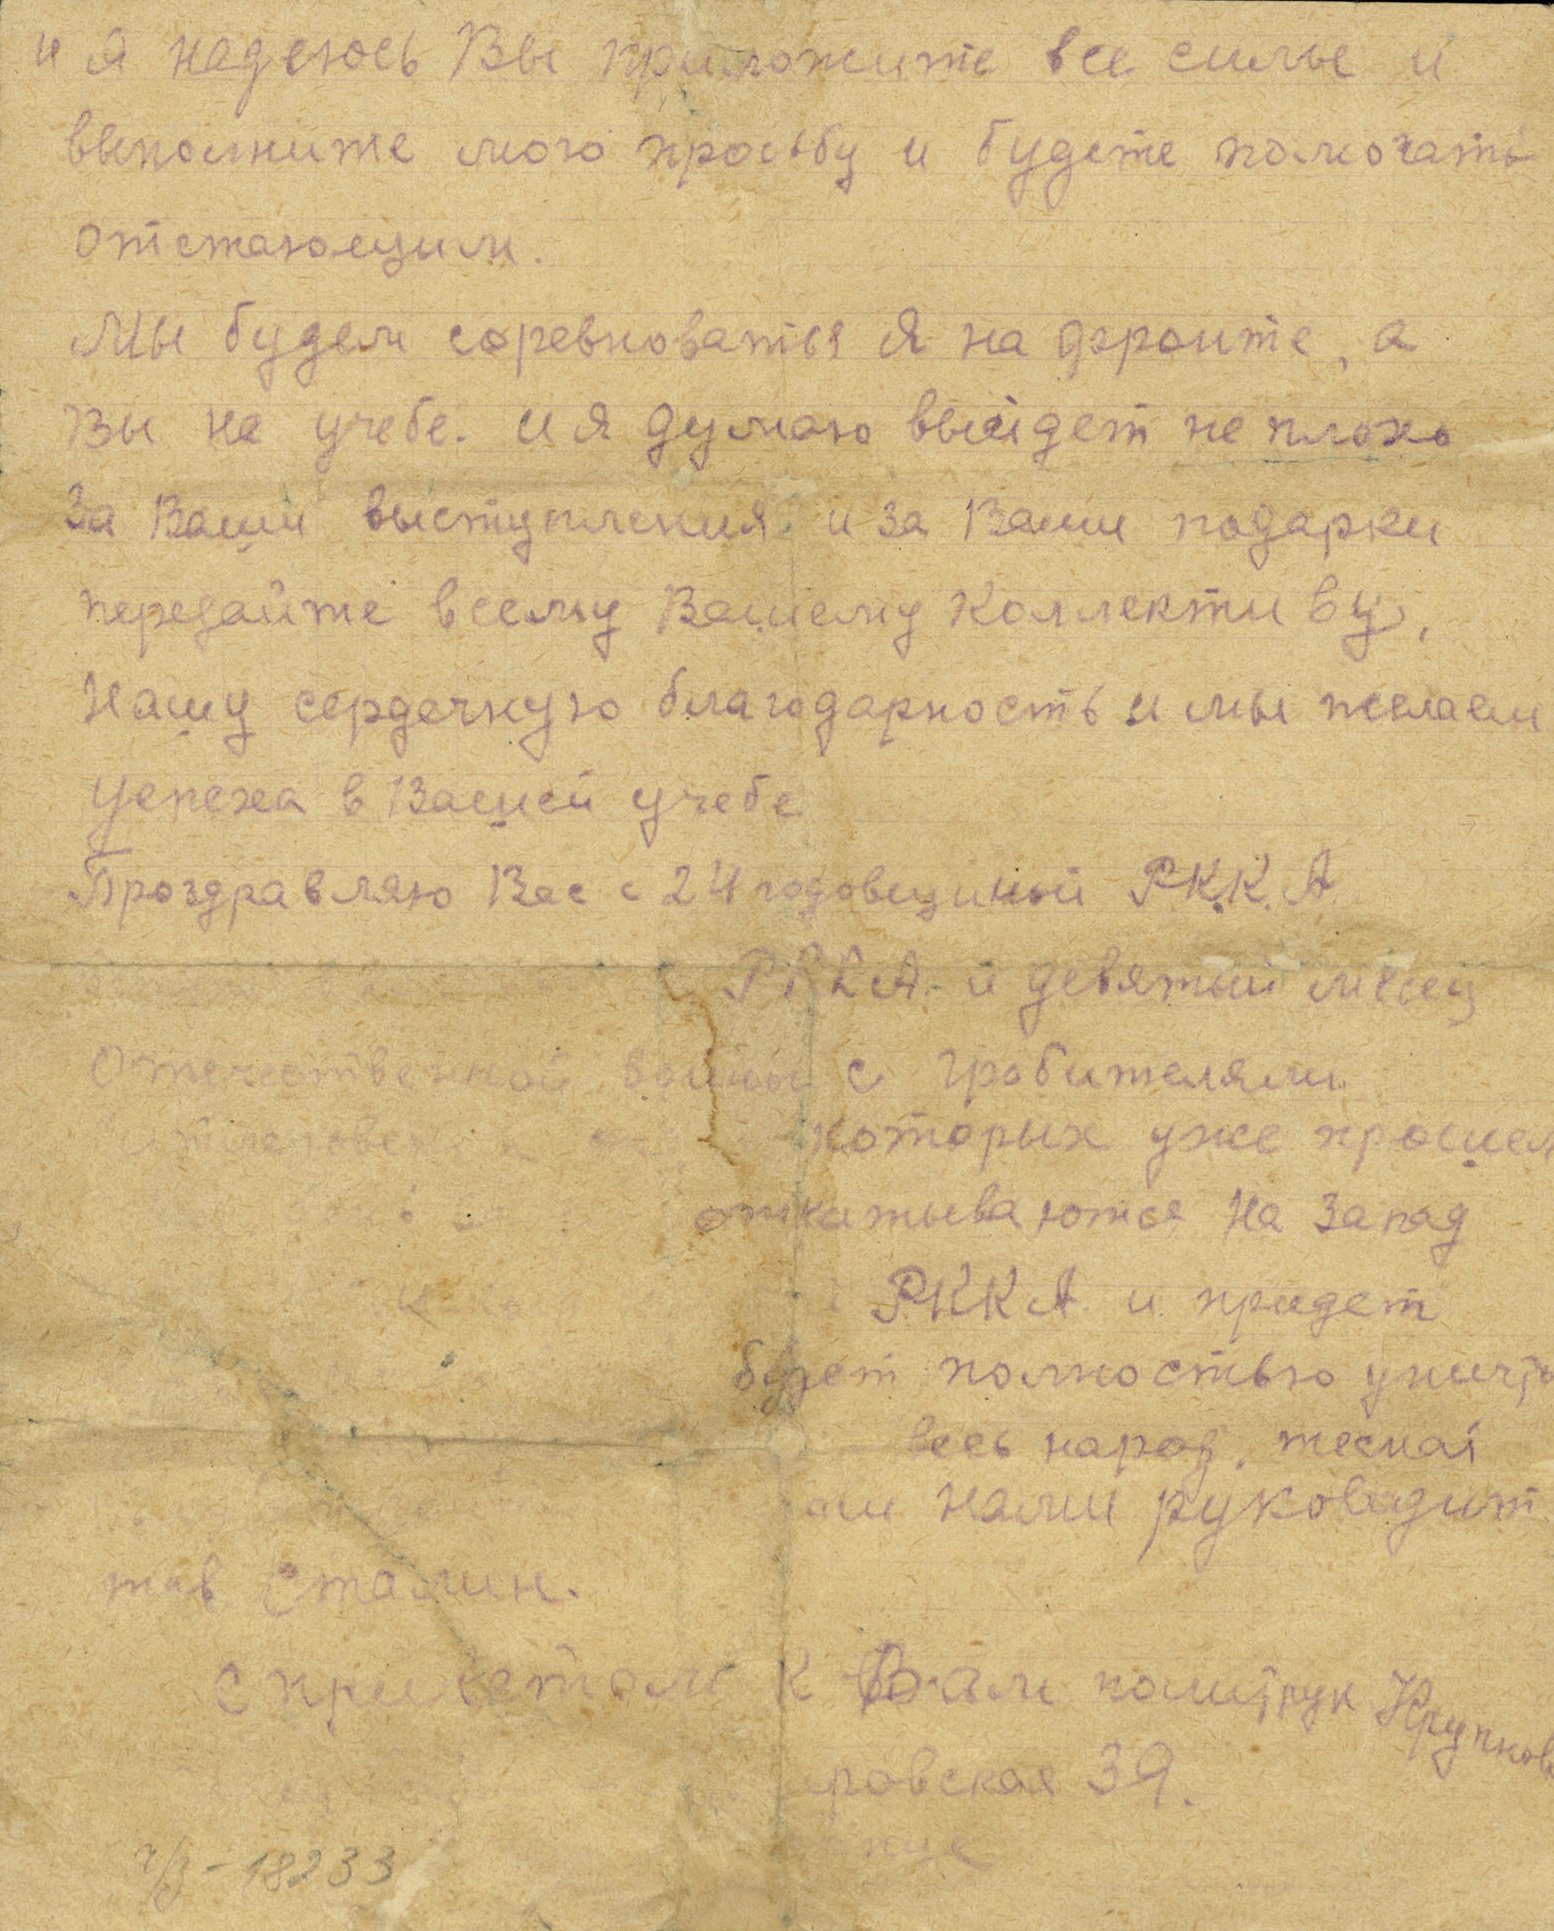 и я надеюсь Вы приложите все силы и
выполните мою просьбу и будете помогать
отстающим.
Мы будем соревноваться Я на фронте, а
Вы на учебе. и я думаю выйдет не плохо
За Ваши выступления и за Ваши подарки
передайте всему Вашему коллективу,
Нашу сердечную благодарность и мы желаем
успеха в Вашей учебе
Проздравляю Вас с 24 годовщиной Р.К.К.А
РККА. и девятый месец
Отечественной войны с грабителями
которых уже прошел
откатываются на Запад
РККА и придет
будет полностью уничто
весь народ.
нами руководит
тов Сталин.
с приветом к Вам политрук Крупнов
ровская 39.
ч/з - 18233